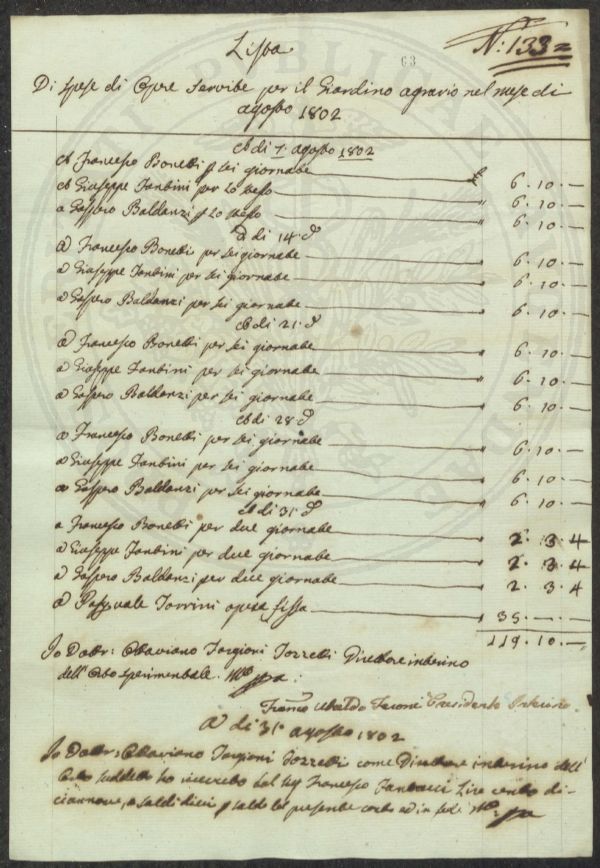 Lista
63
N: 133=
Di spese di Opere servite per il Giardino agrario nel mese di
agosto 1802
A di 7. agosto 1802
A Francesco Bonetti p sei giornate £ 6. 10. —
A Giuseppe Fantini per lo stesso " 6. 10. —
a Gaspero Baldanzi p lo stesso " 6. 10. —
A di 14. do
A Francesco Bonetti per sei giornate " 6. 10. —
a Giuseppe Fantini per sei giornate " 6. 10. —
a Gaspero Baldanzi per sei giornate " 6. 10. —
A di 21. do
a Francesco Bonetti per sei giornate " 6. 10. —
a Giuseppe Fantini per sei giornate " 6. 10. —
a Gaspero Baldanzi per sei giornate " 6. 10. —
A di 28. do
a Francesco Bonetti per sei giornate " 6. 10. —
a Giuseppe Fantini per sei giornate " 6. 10. —
a Gaspero Baldanzi per sei giornate " 6. 10. —
A di 31. do
a Francesco Bonetti per due giornate " 2. 3. 4
a Giuseppe Fantini per due giornate " 2. 3. 4
a Gaspero Baldanzi per due giornate " 2. 3. 4
a Pasquale Torrini opera fissa " 35. — . —
119. 10. —
Io Dottr: Ottaviano Targioni Tozzetti Direttore interino
dell'Orto sperimentale. Mo ppa:
Franco Ubaldo Feroni Presidente Interino.
A di 31. agosto 1802
Io Dottr: Ottaviano Targioni Tozzetti come Direttore interino dell'
Orto suddetto ho ricevuto dal Sig Francesco Lire cento di-
ciannove, e soldi dieci p saldo del presente conto ed in fede Mo ppa